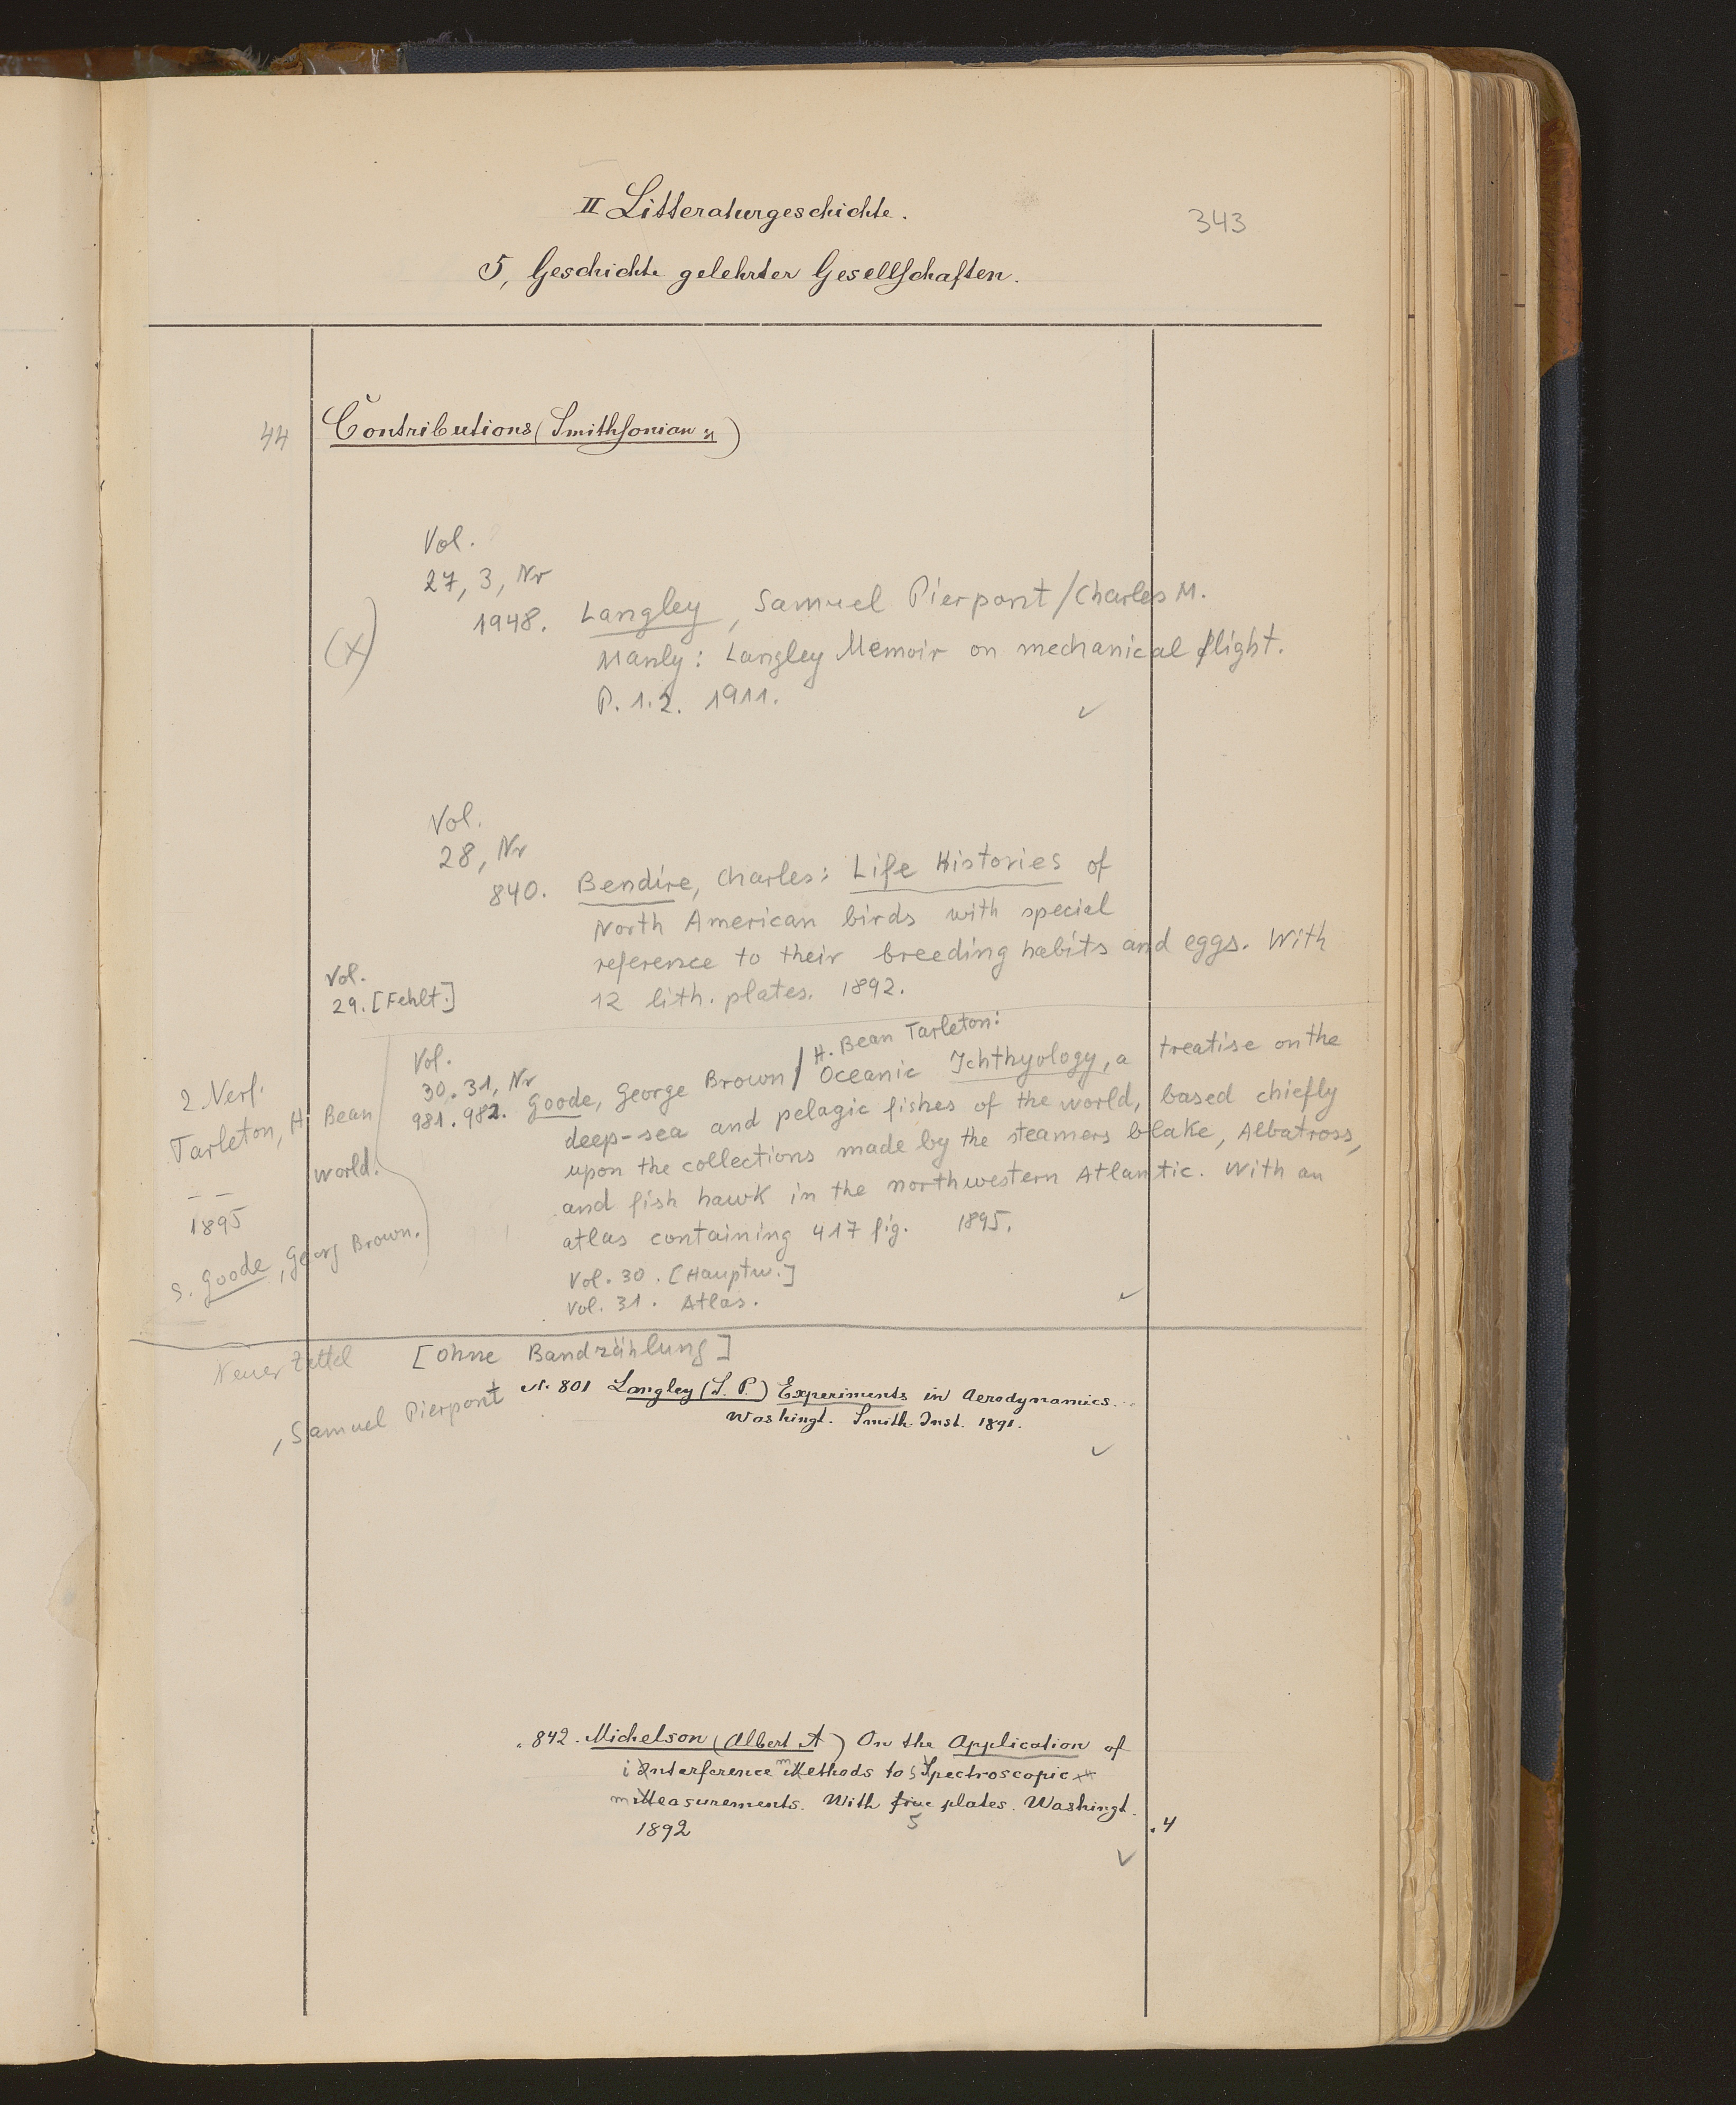 II Litteraturgeschichte.
343
5, Geschichte gelehrter Gesellschaften.
44
Contributions (Smithsonian
Vol.
27, 3, Nr
1948. Langley, Samuel Pierpont / Charles M.
(x)
Manly: Langley Memoir on mechanical flight.
P. 1.2. 1911.
Vol.
28, Nr
840. Bendire, Charles: Life Histories of
North American birds with special
reference to their breeding habits and eggs. With
12 lith. plates. 1892.
Vol.
29. [Fehlt.]
Vol.
30.31, Nr
981.982. Goode, George Brown / H. Bean Tarleton:
Oceanic Ichthyology, a treatise on the
deep-sea and pelagic fishes of the world, based chiefly
upon the collections made by the steamers blake, Albatross,
and fish hawk in the northwestern Atlantic. With an
atlas containing 417 fig. 1895.
Vol. 30. [Hauptw.]
Vol. 31. Atlas.
2. Verf.
Tarleton, H. Bean
world.
– –
1895
s. Goode, Georg Brown.
Neuer Zettel [ohne Bandzählung]
, Samuel Pierpont
N. 801 Langley (S. P.) Experiments in Aerodynamics.
Washingt. Smith. Inst. 1891.
„ 842. Michelson (Albert A) On the Application of
interference methods to spectroscopic
measurements. With five plates. Washingt.
5
1892
„ 4